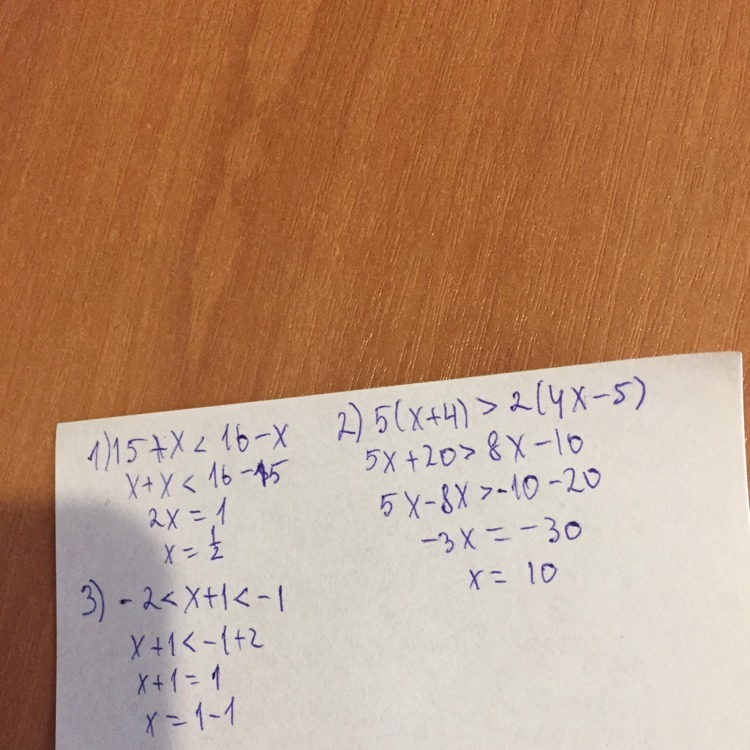 1) 15+x < 16-x
x+x < 16-15
2x = 1
x = 1/2
2) 5(x+4) > 2(4x-5)
5x+20 > 8x-10
5x-8x > -10-20
-3x = -30
x = 10
3) -2 < x+1 < -1
x+1 < -1+2
x+1 = 1
x = 1-1